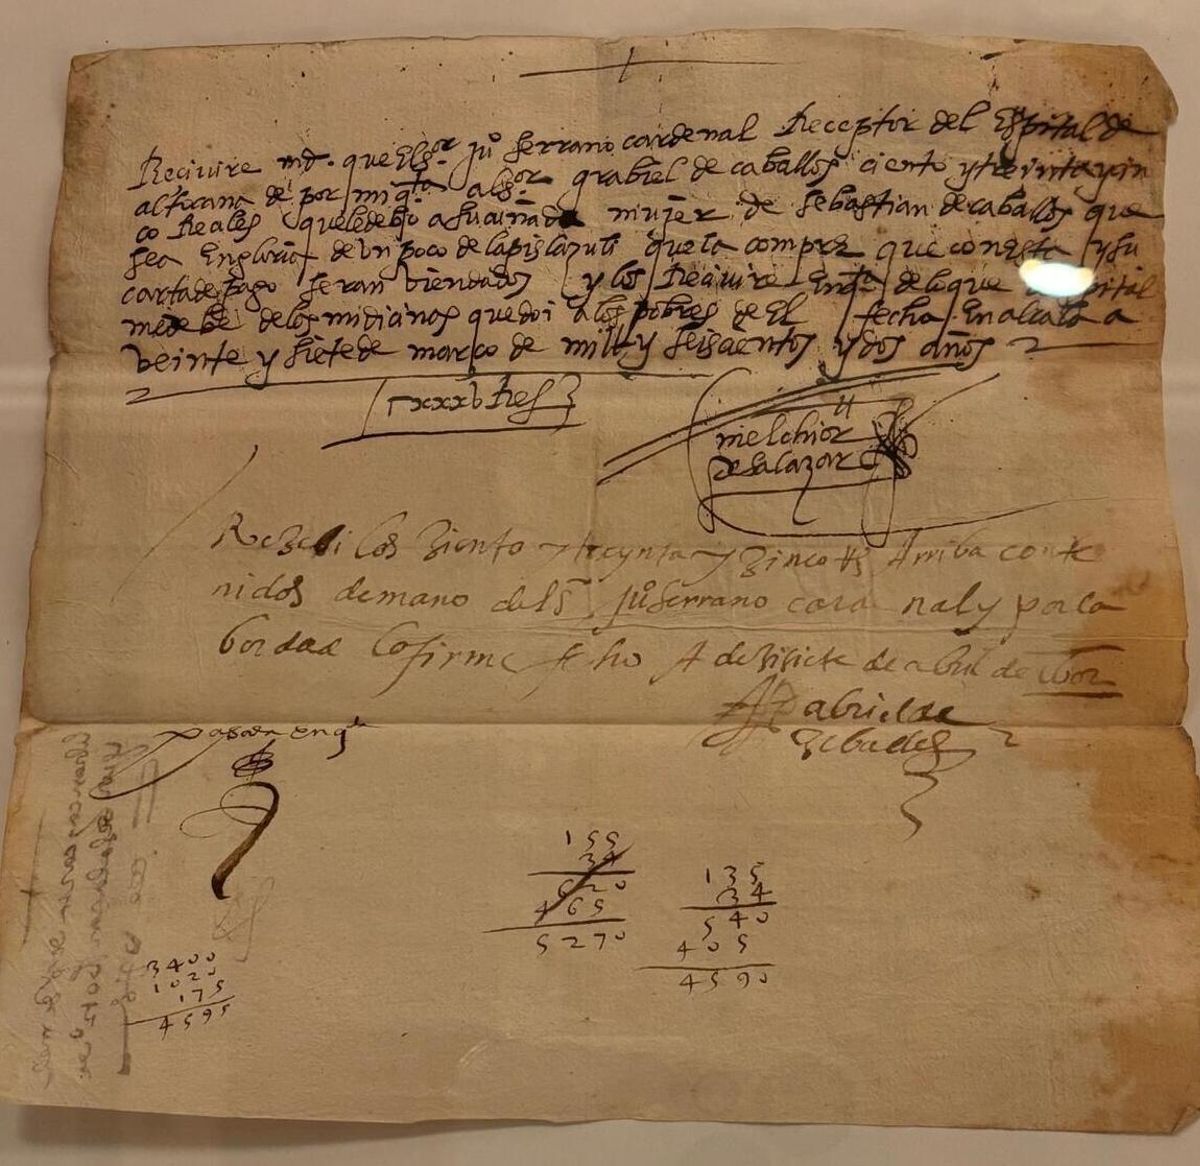 Recivire md. que el sr. ju° serrano cardenal Receptor del Espital de
altocana de por mi qta al sr. grabiel de caballos ciento y treinta y cin
co Reales que le debo a su cuñada mujer de sebastian de caballos que
sea En gloria de Un poco de lapislazuli que la compre que con esta y su
carta de pago seran bien dados y los Recivire En qta de lo que pital
me debe de los midicinas que doi a los pobres de El fecha En alcala a
veinte y siete de março de mill y seiscientos y dos años
cxxxv Res
melchior
de salazar
Rezebi los ziento y treynta y zinco Rs Arriba conte
nidos de mano del sr ju° serrano cardenal y por la
berdad lo firme fho A dezisiete de abril de
Gabriel de
Zeballos
pasada en qta
155
34
620
465
5270
135
34
540
405
4590
3400
1020
175
4595